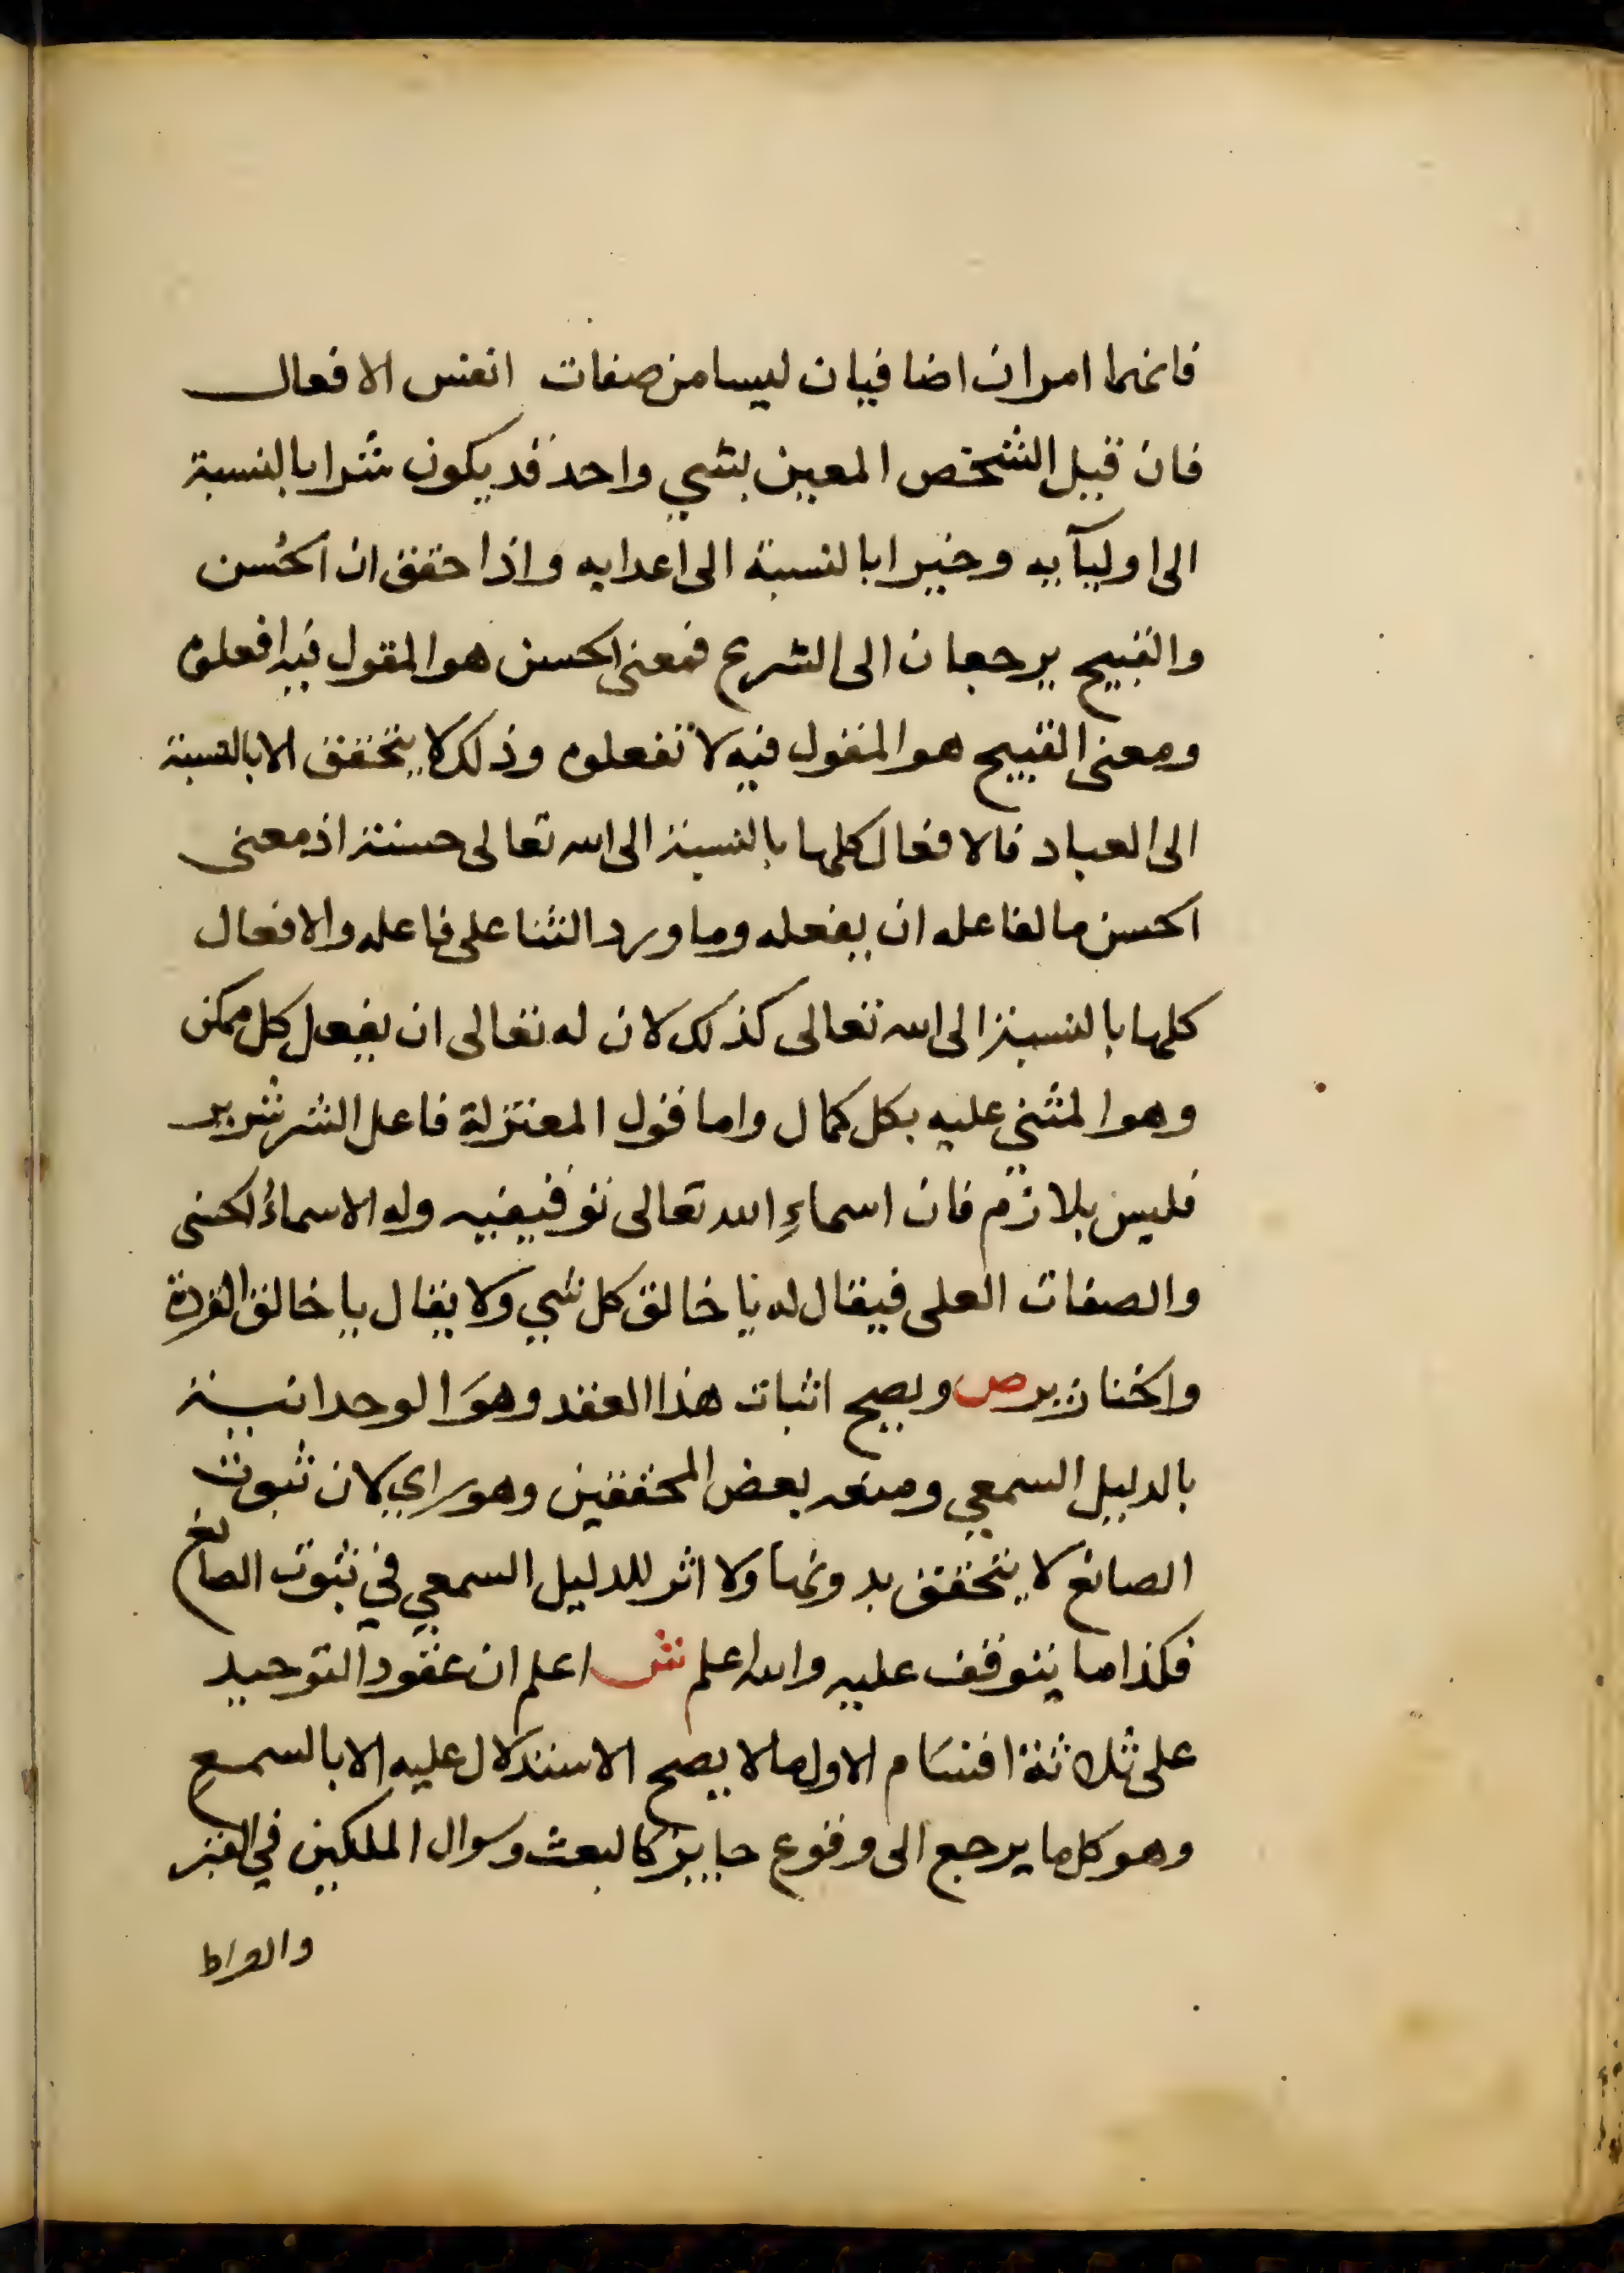 فانهما امران اضافيان ليسا من صفات انفس الافعال
فان قبل الشخص المعين بشي واحد قد يكون شرا بالنسبة
الى اوليآيه وخيرا بالنسبة الى اعدايه واذا حقق ان الحسن
والقبيح يرجعان الى الشرع فمعنى الحسن هو المقول فيه افعلوه
ومعنى القبيح هو المقول فيه لا تفعلوه وذلك لا يتحقق الا بالنسبة
الى العباد فالافعال كلها بالنسبة الى الله تعالى حسنة اذ معنى
الحسن ما لفاعله ان يفعله وما ورد الثنا على فاعله والافعال
كلها بالنسبة الى الله تعالى كذلك لان له تعالى ان يفعل كل ممكن
وهو المثني عليه بكل كمال واما قول المعتزلة فاعل الشر شرير
فليس بلازم فان اسماءِ الله تعالى توقيفيه وله الاسماءُ الحسنى
والصفات العلى فيقال له يا خالق كل شي ولا يقال يا خالق القردة
والخنازير ص ويصح اثبات هذا العقد وهوَ الوحدانية
بالدليل السمعي ومنعه بعض المحققين وهو راي لان ثبوت
الصانع لا يتحقق بدونها ولا اثر للدليل السمعي في ثبوت الصانع
فكذا ما يتوقف عليه والله اعلم ش اعلم ان عقود التوحيد
على ثلاثة اقسَام الاول ما لا يصح الاستدلال عليه الا بالسمع
وهو كل ما يرجع الى وقوع جايز كالبعث وسوال الملكين في القبر
والصراط